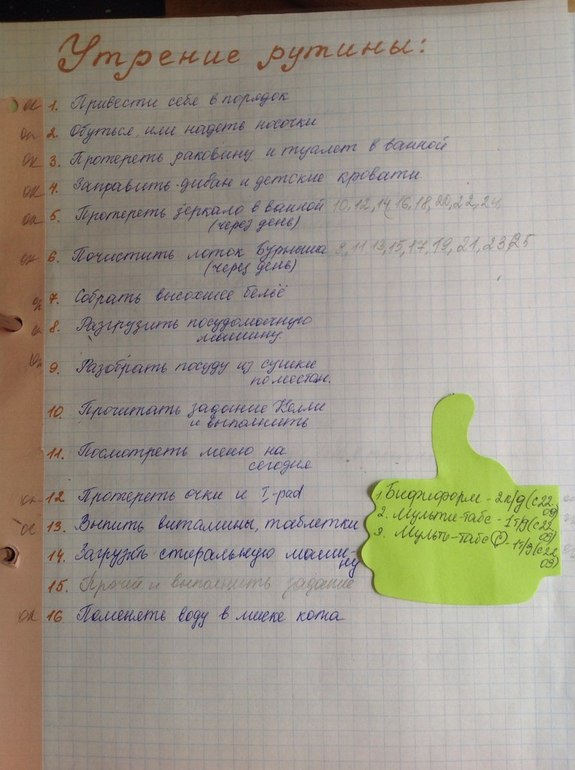 Утрение рутины:
ок 1. Привести себя в порядок
ок 2. Обуться, или надеть носочки
ок 3. Протереть раковину и туалет в ванной
ок 4. Заправить диван и детские кровати
ок 5. Протереть зеркало в ванной 10, 12, 14, 16, 18, 20, 22, 24
(через день)
ок 6. Почистить лоток Бурныша 9, 11 13, 15, 17, 19, 21, 23, 25
(через день)
ок 7. Собрать высохшее бельё
ок 8. Разгрузить посудомоечную
машину
ок 9. Разобрать посуду из сушки
по местам.
10. Прочитать задание Келли
и выполнить
11. Посмотреть меню на
сегодня
ок 12 Протереть очки и I-pad
ок 13. Выпить витамины, таблетки
14. Загрузить стиральную маши-
ну
15. Прочит и выполнить задание
ок 16 Поменять воду в миске кота
1. Бифиформ - 2к/д (с 22
09)
2. Мульти-табс - 1т/д (с 22
09)
3. Мульти-табс С - 1т/д (с 22
09)